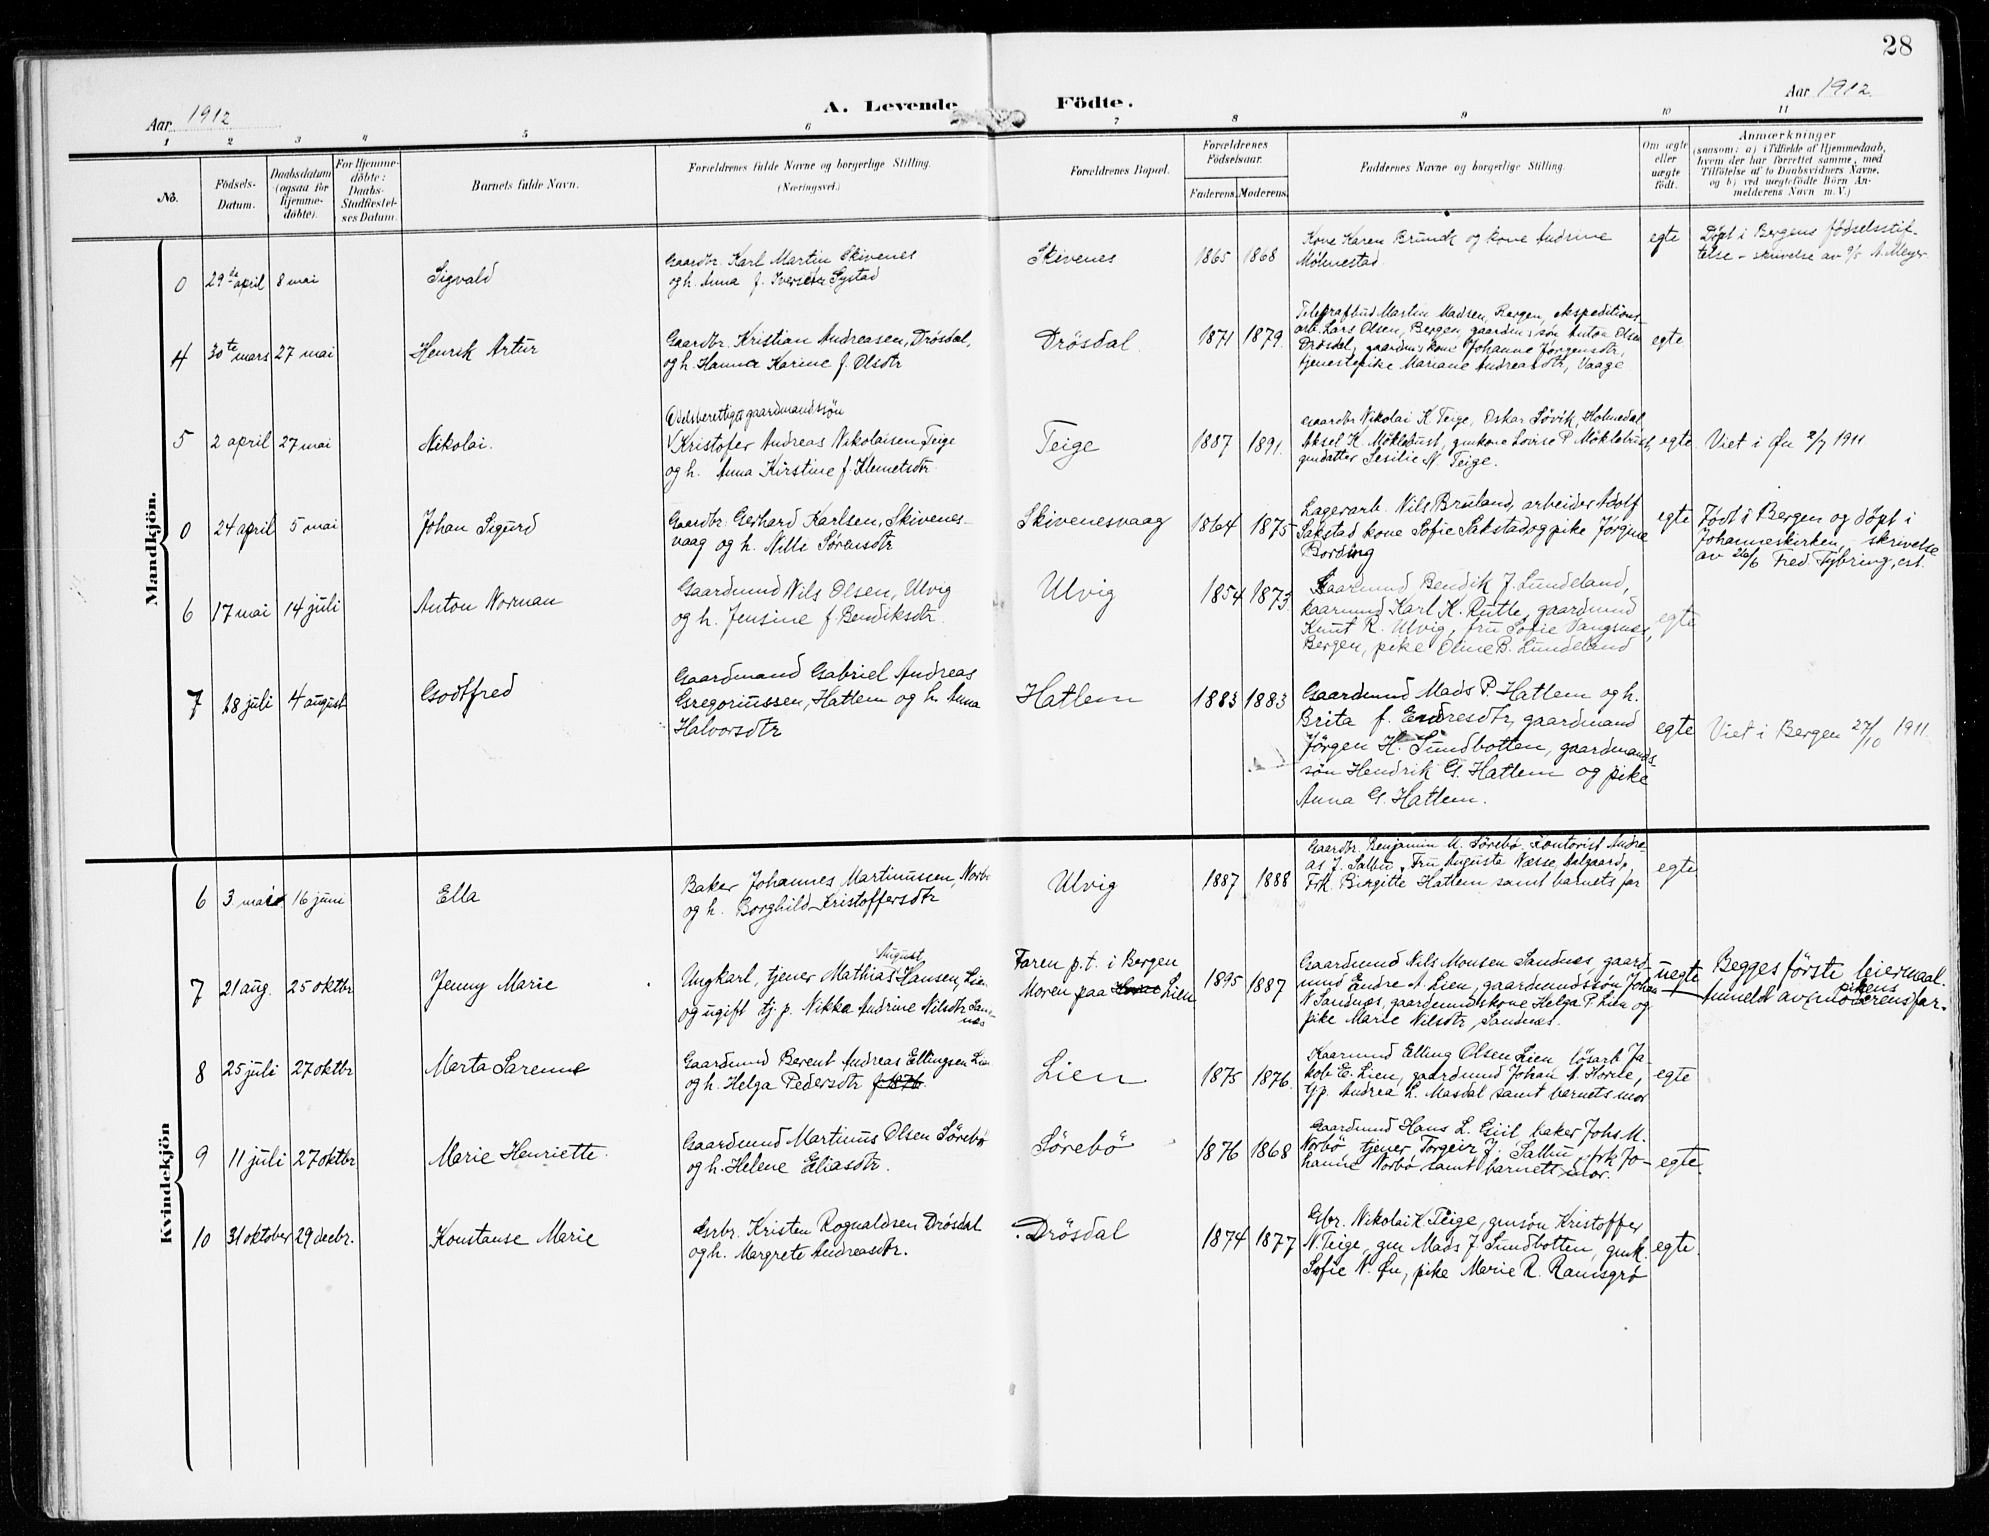 28
Aar 1912
A. Levende Födte.
Aar 1912
1 2 3 4 5 6 7 8 9 10 11
No.
Födsels-Datum.
Daabsdatum (ogsaa for hjemme-döbte).
For Hjemme-döbte: Daabs-Stadfæstel-ses Datum.
Barnets fulde Navn.
Forældrenes fulde Navne og borgerlige Stilling.
(Næringsvei.)
Forældrenes Bopæl.
Forældrenes Födselsaar.
Faderens. Moderens.
Faddernes Navne og borgerlige Stilling.
Om ægte eller uægte født.
Anmærkninger
(saasom: a) i Tilfælde af Hjemmedaab,
hvem der har forrettet samme, med
Tilföielse af to Daabsvidners Navne,
og b) ved uægtefödte Börn An-
melderens Navn m. V.)
Mandkjön.
0 29de april 8 mai Sigvald
Gaardbr. Karl Martin Skivenes
og h. Anna f. Iversdtr Systad
Skivenes 1865 1868
Kone Karen Brunck og kone Andrine
Mölmestad
egte
Döpt i Bergens födselsstif-
telse - skrivelse av 9/5 A. Meyer
4 30te mars 27 mai Henrik Artur
Gaardbr. Kristian Andreasen, Drösdal,
og h. Hanna Karine f. Olsdtr
Drösdal 1871 1879
Telegrafbud Martin Madsen, Bergen, ekspeditions
arb. Lars Olsen, Bergen, gaardm.sön Anton Olsen
Drösdal, gaardm.kone Johanne Jörgensdtr,
tjenestepike Mariane Andreasdtr, Vaage
egte
5 2 april 27 mai Nikolai.
Odelsberettiget gaardmandssön
Kristofer Andreas Nikolaisen, Teige
og h. Anna Kirstine f. Klemetsdtr
Teige 1887 1891
Gaardbr Nikolai K Teige, Oskar Lövik, Holmedal,
Aksel K. Möklebust, gmkone Lovise P. Möklebust,
gmdatter Sesilie N. Teige.
egte Viet i Øn 2/7 1911
0 24 april 5 mai Johan Sigurd
Gaardbr. Gerhard Karlsen, Skivenes-
vaag og h. Nille Sörensdtr
Skivenesvaag 1864 1875
Lagerarb. Nils Bruland, arbeider Adolf
Sakstad kone Sofie Sakstad og pike Jörgine
Bording
egte
Födt i Bergen og döpt i
Johanneskirken, skrivelse
av 26/6 Fred Tybring, est.
6 17 mai 14 juli Anton Norman
Gaardmand Nils Olsen, Ulvig
og h. Jensine f. Bendiksdtr
Ulvig 1854 1873
Kaarmand Bendik J. Lundeland,
kaarmand Karl K. Rutle, gaardmand
Knut R. Ulvig, fru Sofie Vangsnes,
Bergen, pike Oline B. Lundeland
egte
7 18 juli 4 august Godtfred
Gaardmand Gabriel Andreas
Gregoriussen, Hatlem og h. Anna
Halvorsdtr
Hatlem 1883 1883
Gaardmand Mads P. Hatlem og h.
Brita f. Endresdtr, gaardmand
Jörgen H. Sundbotten, gaardmands-
sön Hendrik G. Hatlem og pike
Anna G. Hatlem.
egte Viet i Bergen 27/10 1911
Kvindekjön
6 3 mai 16 juni Ella
Baker Johannes Martinussen, Norbö
og h. Borghild Kristoffersdtr
Ulvig 1887 1888
Gaardbr. Benjamin M. Sörebö, Kontorist Andre-
as J. Salbu, Fru Augusta Næsse, Aalgaard,
Frk. Birgitte Hatlem samt barnets far
egte
7 21 aug. 25 oktbr Jenny Marie
August
Ungkarl, tjener Mathias Hansen, Lien
og ugift tj. p. Nikka Andrine Nilsdtr Sand-
næs
Faren p.t. i Bergen
Moren paa Lien
1895 1887
Gaardmand Nils Monsen Sandnæs, gaard-
mand Endre A. Lien, gaardmandssön Johan
N. Sandnæs, gaardmandskone Helga P. Lien og
pike Marie Nilsdtr, Sandnæs.
uegte
Begges förste leiermaal.
pikens
Anmeldt av (moderens) far.
8 25 juli 27 oktbr Marta Sarenne
Gaardmand Berent Andreas Ellingsen Lien
og h. Helga Pedersdtr f. 1876.
Lien 1875 1876
Kaarmand Elling Olsen Lien, lösarb Ja-
kob E. Lien, gaardmand Johan A. Hovle,
tjp. Andrea L. Masdal samt barnets mor
egte
9 11 juli 27 oktbr Marie Henriette.
Gaardmand Martinus Olsen Sörebö
og h. Helene Eliasdtr.
Sörebö 1876 1868
Gaardmand Hans L. Giil, baker Johs M.
Norbö, tjener Torgeir J. Salbu, frk Jo-
hanne Norbö samt barnets mor.
egte.
10 31 oktober 29 decbr. Konstanse Marie
Grbr. Kristen Rognaldsen Drösdal
og h. Margrete Andreasdtr.
Drösdal 1874 1877
Gbr. Nikolai K Teige, gmsön Kristoffer
N. Teige, gm Mads J. Sundbotten, gmk.
Sofie N. Øn, pike Marie R. Ramsgrö
egte.